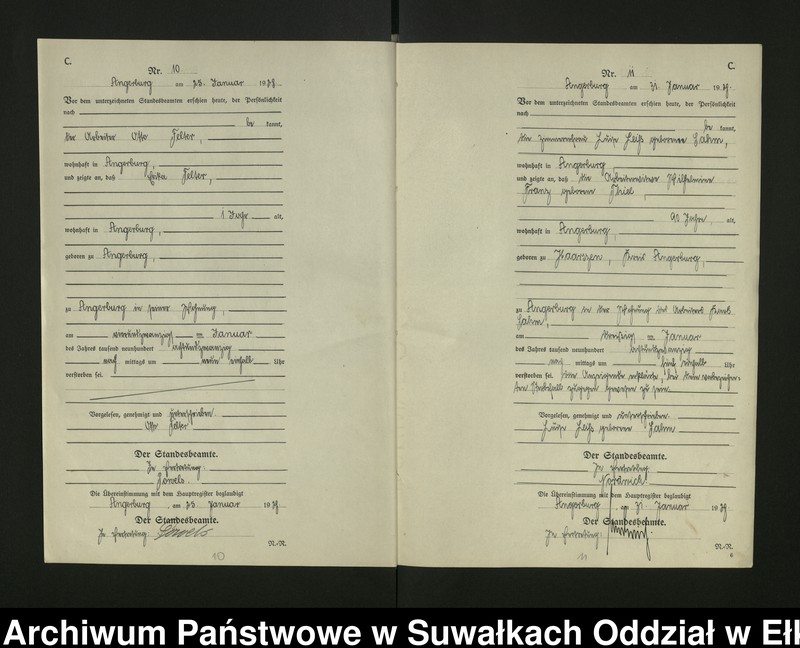 C.
Nr. 10.
Angerburg am 25. Januar 1928.
Vor dem unterzeichneten Standesbeamten erschien heute, der Persönlichkeit
nach
be kannt,
der Arbeiter Otto Felter,
wohnhaft in Angerburg,
und zeigte an, daß Erika Felter,
1 Jahr alt,
wohnhaft in Angerburg,
geboren zu Angerburg,
zu Angerburg in seiner Wohnung,
am vierundzwanzigsten Januar
des Jahres tausend neunhundert achtundzwanzig
nach mittags um neun einhalb Uhr
verstorben sei.
Vorgelesen, genehmigt und unterschrieben.
Otto Felter
Der Standesbeamte.
In Vertretung.
Die Übereinstimmung mit dem Hauptregister beglaubigt
Angerburg, am 25. Januar 1928.
Der Standesbeamte.
In Vertretung
N.-N.
10
C.
Nr. 11
Angerburg am 31. Januar 1928.
Vor dem unterzeichneten Standesbeamten erschien heute, der Persönlichkeit
nach
be kannt,
die Luise geborene Hahm,
wohnhaft in Angerburg,
und zeigte an, daß die Wilhelmine
Franz geborene Thiel,
90 Jahre, alt,
wohnhaft in Angerburg,
geboren zu Haarszen, Kreis Angerburg,
zu Angerburg in der Wohnung des Arbeiters
Hahm,
am dreißigsten Januar
des Jahres tausend neunhundert achtundzwanzig
nach mittags um einhalb Uhr
verstorben sei. Die Anzeigende erklärte, bei dem
Sterbefall zugegen gewesen zu sein.
Vorgelesen, genehmigt und unterschrieben.
Luise geborene Hahm
Der Standesbeamte.
In Vertretung
Die Übereinstimmung mit dem Hauptregister beglaubigt
Angerburg, am 31. Januar 1928.
Der Standesbeamte.
In Vertretung.
N.-N.
6
11
Archiwum Państwowe w Suwałkach Oddział w Ełk